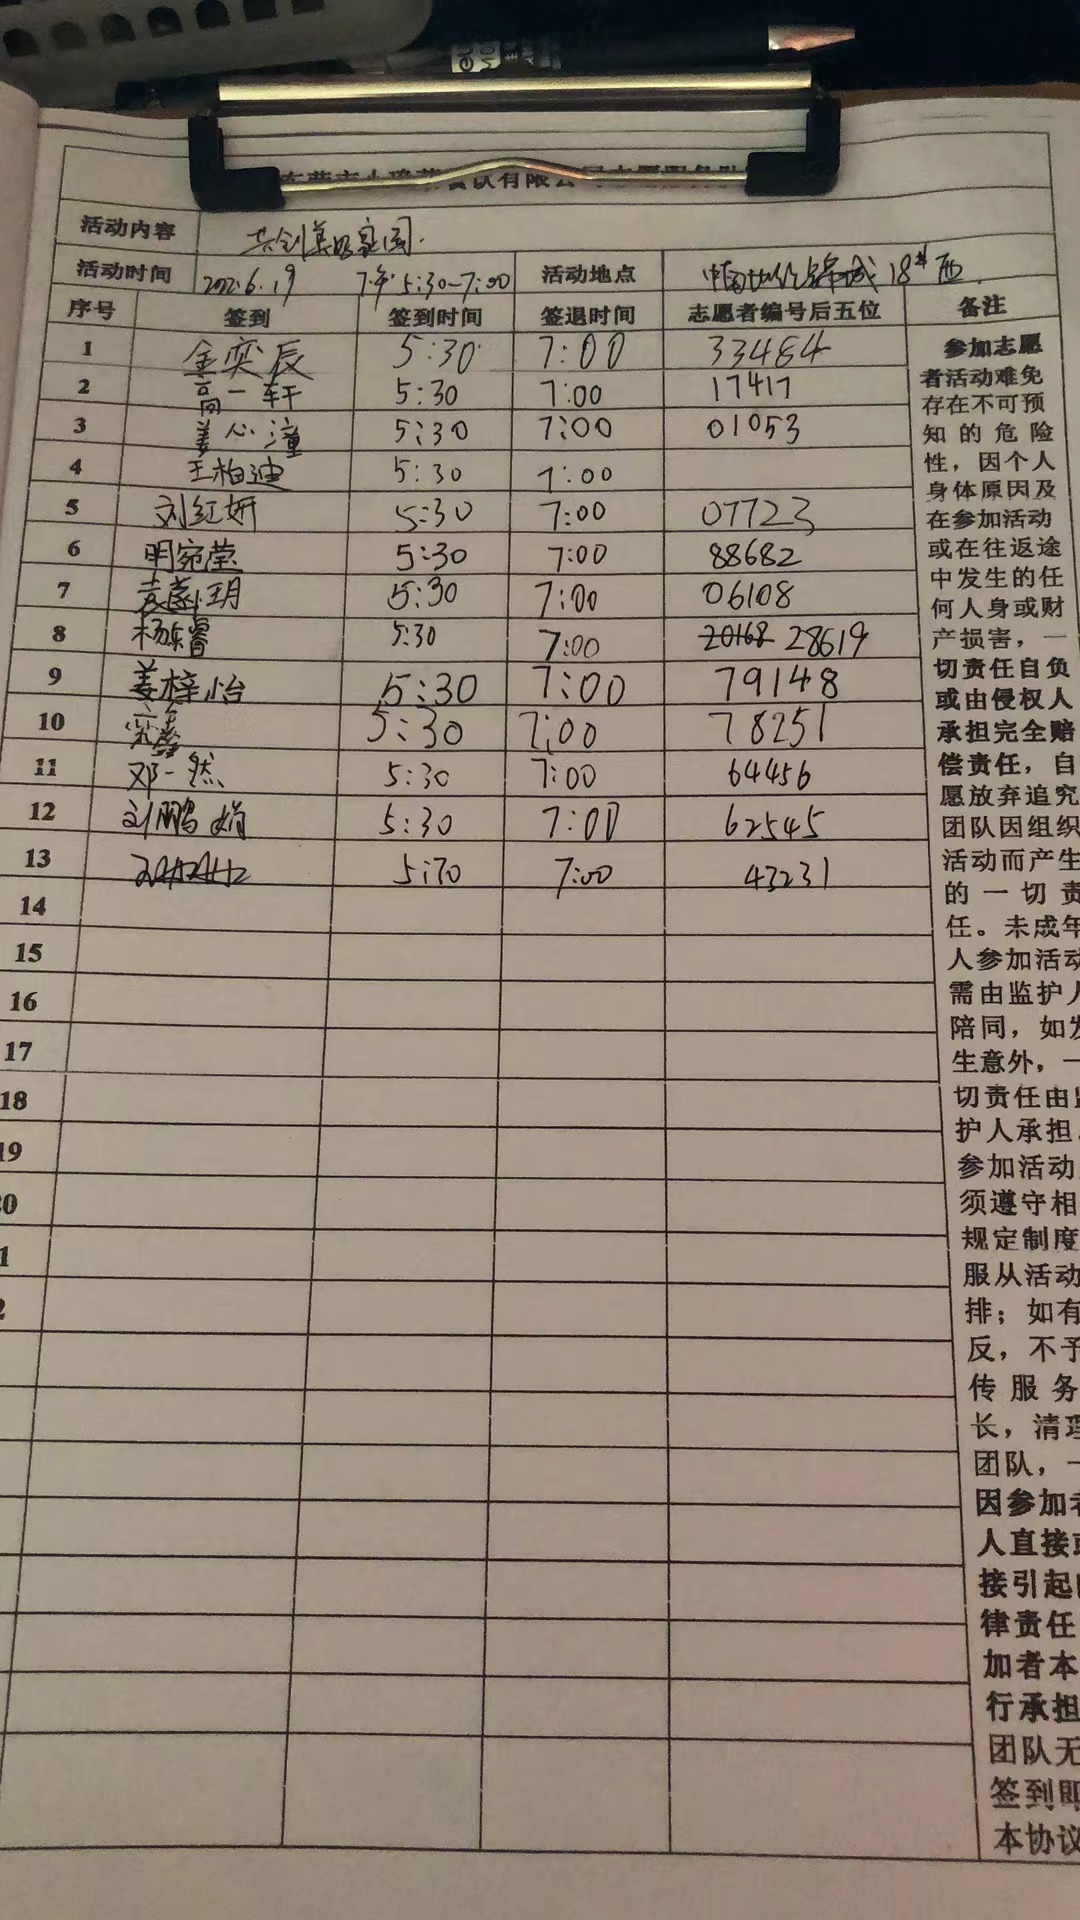 餐饮有限公司志愿服务
活动内容 共创美好家园.
活动时间 2022.6.19 下午5:30-7:00 活动地点 中国 城 18# 西
序号 签到 签到时间 签退时间 志愿者编号后五位 备注
1 金奕辰 5:30 7:00 33464
2 高一轩 5:30 7:00 17417
3 姜心潼 5:30 7:00 01053
4 王柏迪 5:30 7:00
5 刘红妍 5:30 7:00 07723
6 明宛莹 5:30 7:00 88682
7 袁 玥 5:30 7:00 06108
8 杨东睿 5:30 7:00 20168 28619
9 姜梓怡 5:30 7:00 79148
10 鑫 5:30 7:00 78251
11 邓一然 5:30 7:00 64456
12 刘鹏娟 5:30 7:00 62545
13 5:30 7:00 43231
14
15
16
17
18
19
20
1
2
参加志愿
者活动难免
存在不可预
知的危险
性，因个人
身体原因及
在参加活动
或在往返途
中发生的任
何人身或财
产损害，一
切责任自负
或由侵权人
承担完全赔
偿责任，自
愿放弃追究
团队因组织
活动而产生
的一切责
任。未成年
人参加活动
需由监护人
陪同，如发
生意外，一
切责任由监
护人承担。
参加活动
须遵守相
规定制度
服从活动
排；如有
反，不予
传服务
长，清理
团队，一
因参加者
人直接或
接引起
律责任
加者本
行承担
团队无
签到即
本协议